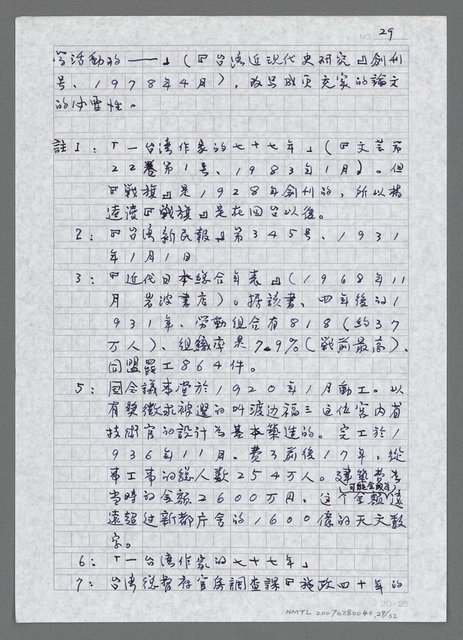 NO. 29
学活動的——」(『台湾近現代史研究』創刊
号、1978年4月),改只成更充実的論文
的必要性。
註1:「一台湾作家的七十七年」(『文芸』第
22巻第1号、1983年1月)。但
『戦旗』是1928年創刊的,所以楊
逵読『戦旗』是在回台以後。
2:『台湾新民報』第345号、1931
年1月1日
3:『近代日本総合年表』(1968年11
月 岩波書店)。据該書、四年後的1
931年、労動組合有818(約37
万人)、組織率是7.9%(戦前最高)、
同盟罷工864件。
5:国会議事堂於1920年1月動工。以
有奨徴求被選的叫渡辺福三這位宮内省
技術官的設計為基本築造的。完工於1
936年11月。費了前後17年,從
事工事的総人数254万人。建築費為
当時的金額2600万円,這个金額遠
遠超过新都庁舎的1600億的天文数
字。
6:「一台湾作家的七十七年」
7:台湾総督府官房調査課『施政四十年的
20×25
NMTL 20070280040 29/32